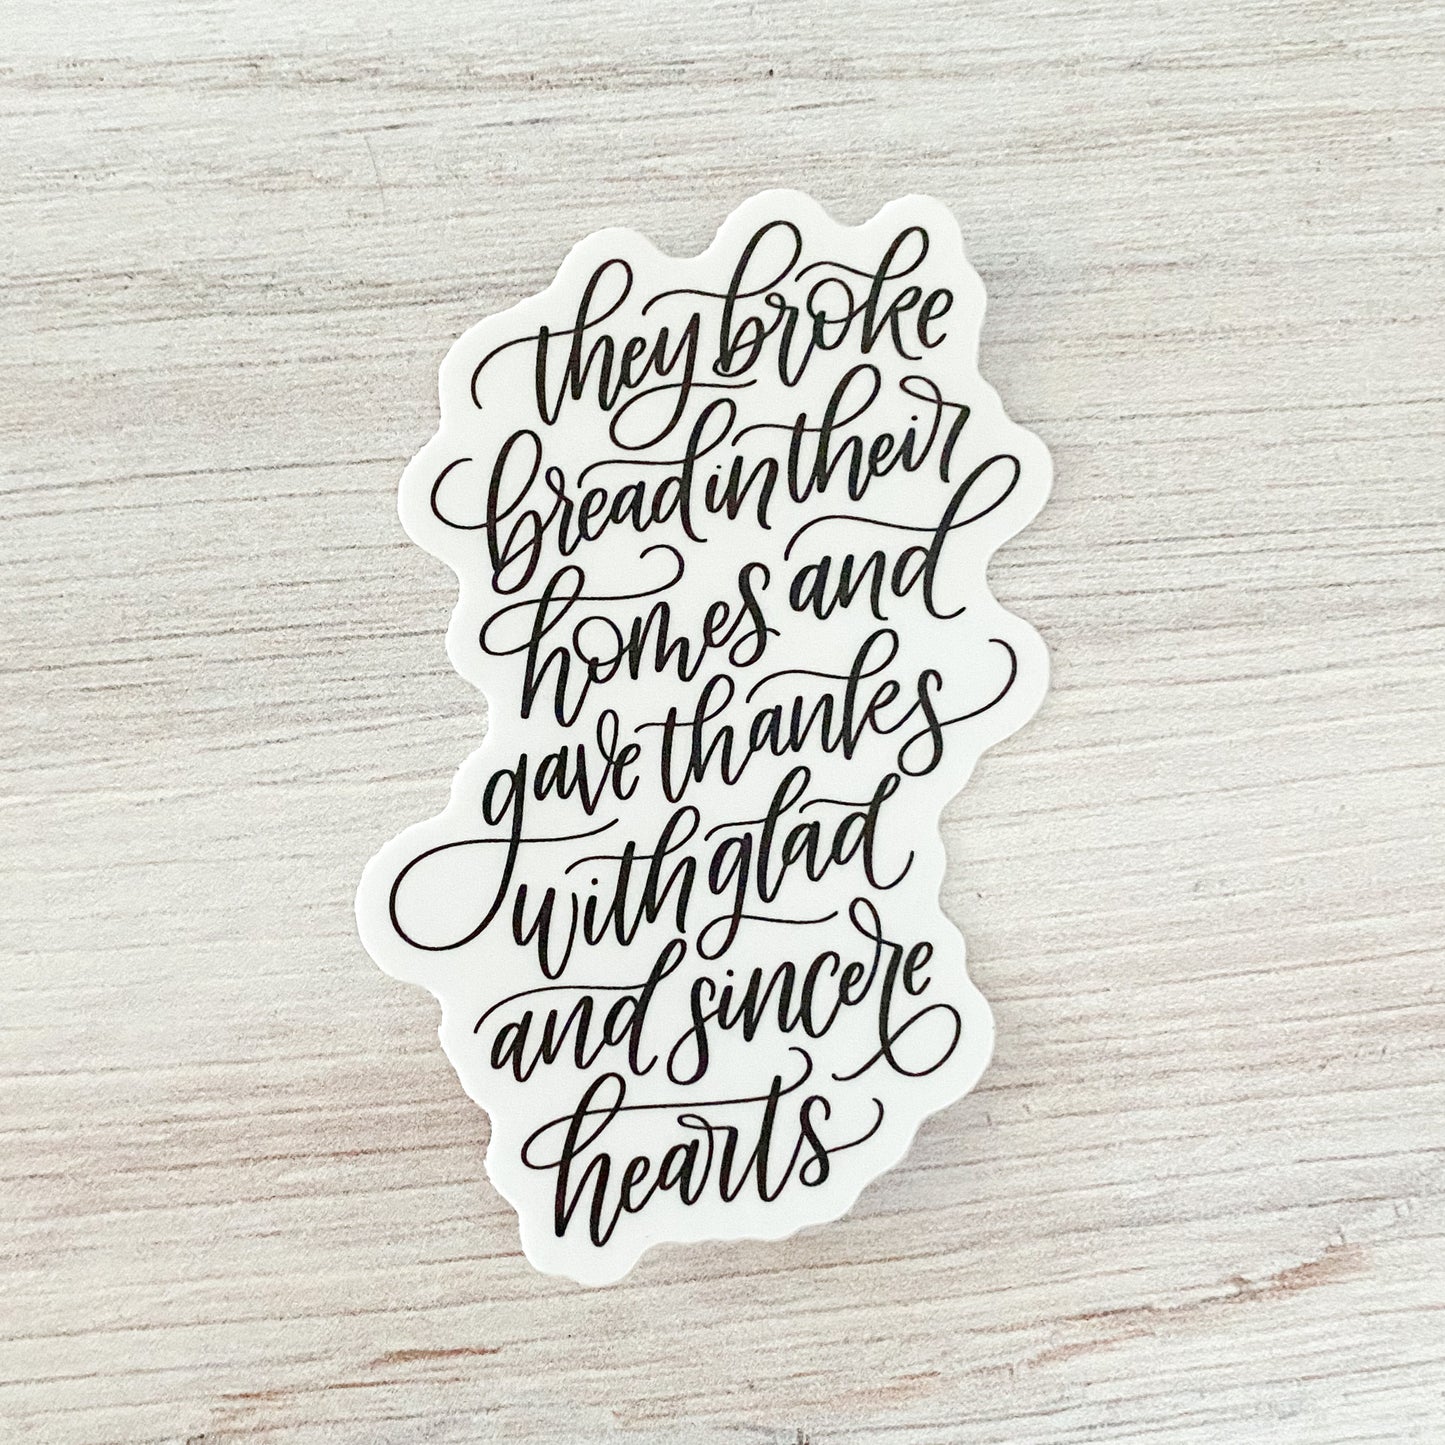 they broke
bread in their
homes and
gave thanks
with glad
and sincere
hearts